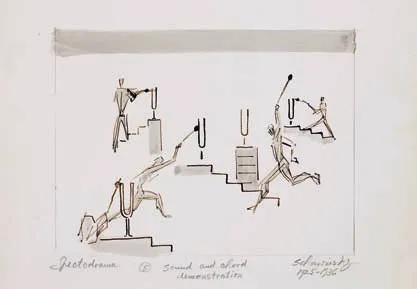 Spectodrama ⑤ sound and chord
demonstration
Schawinsky
1925-1936